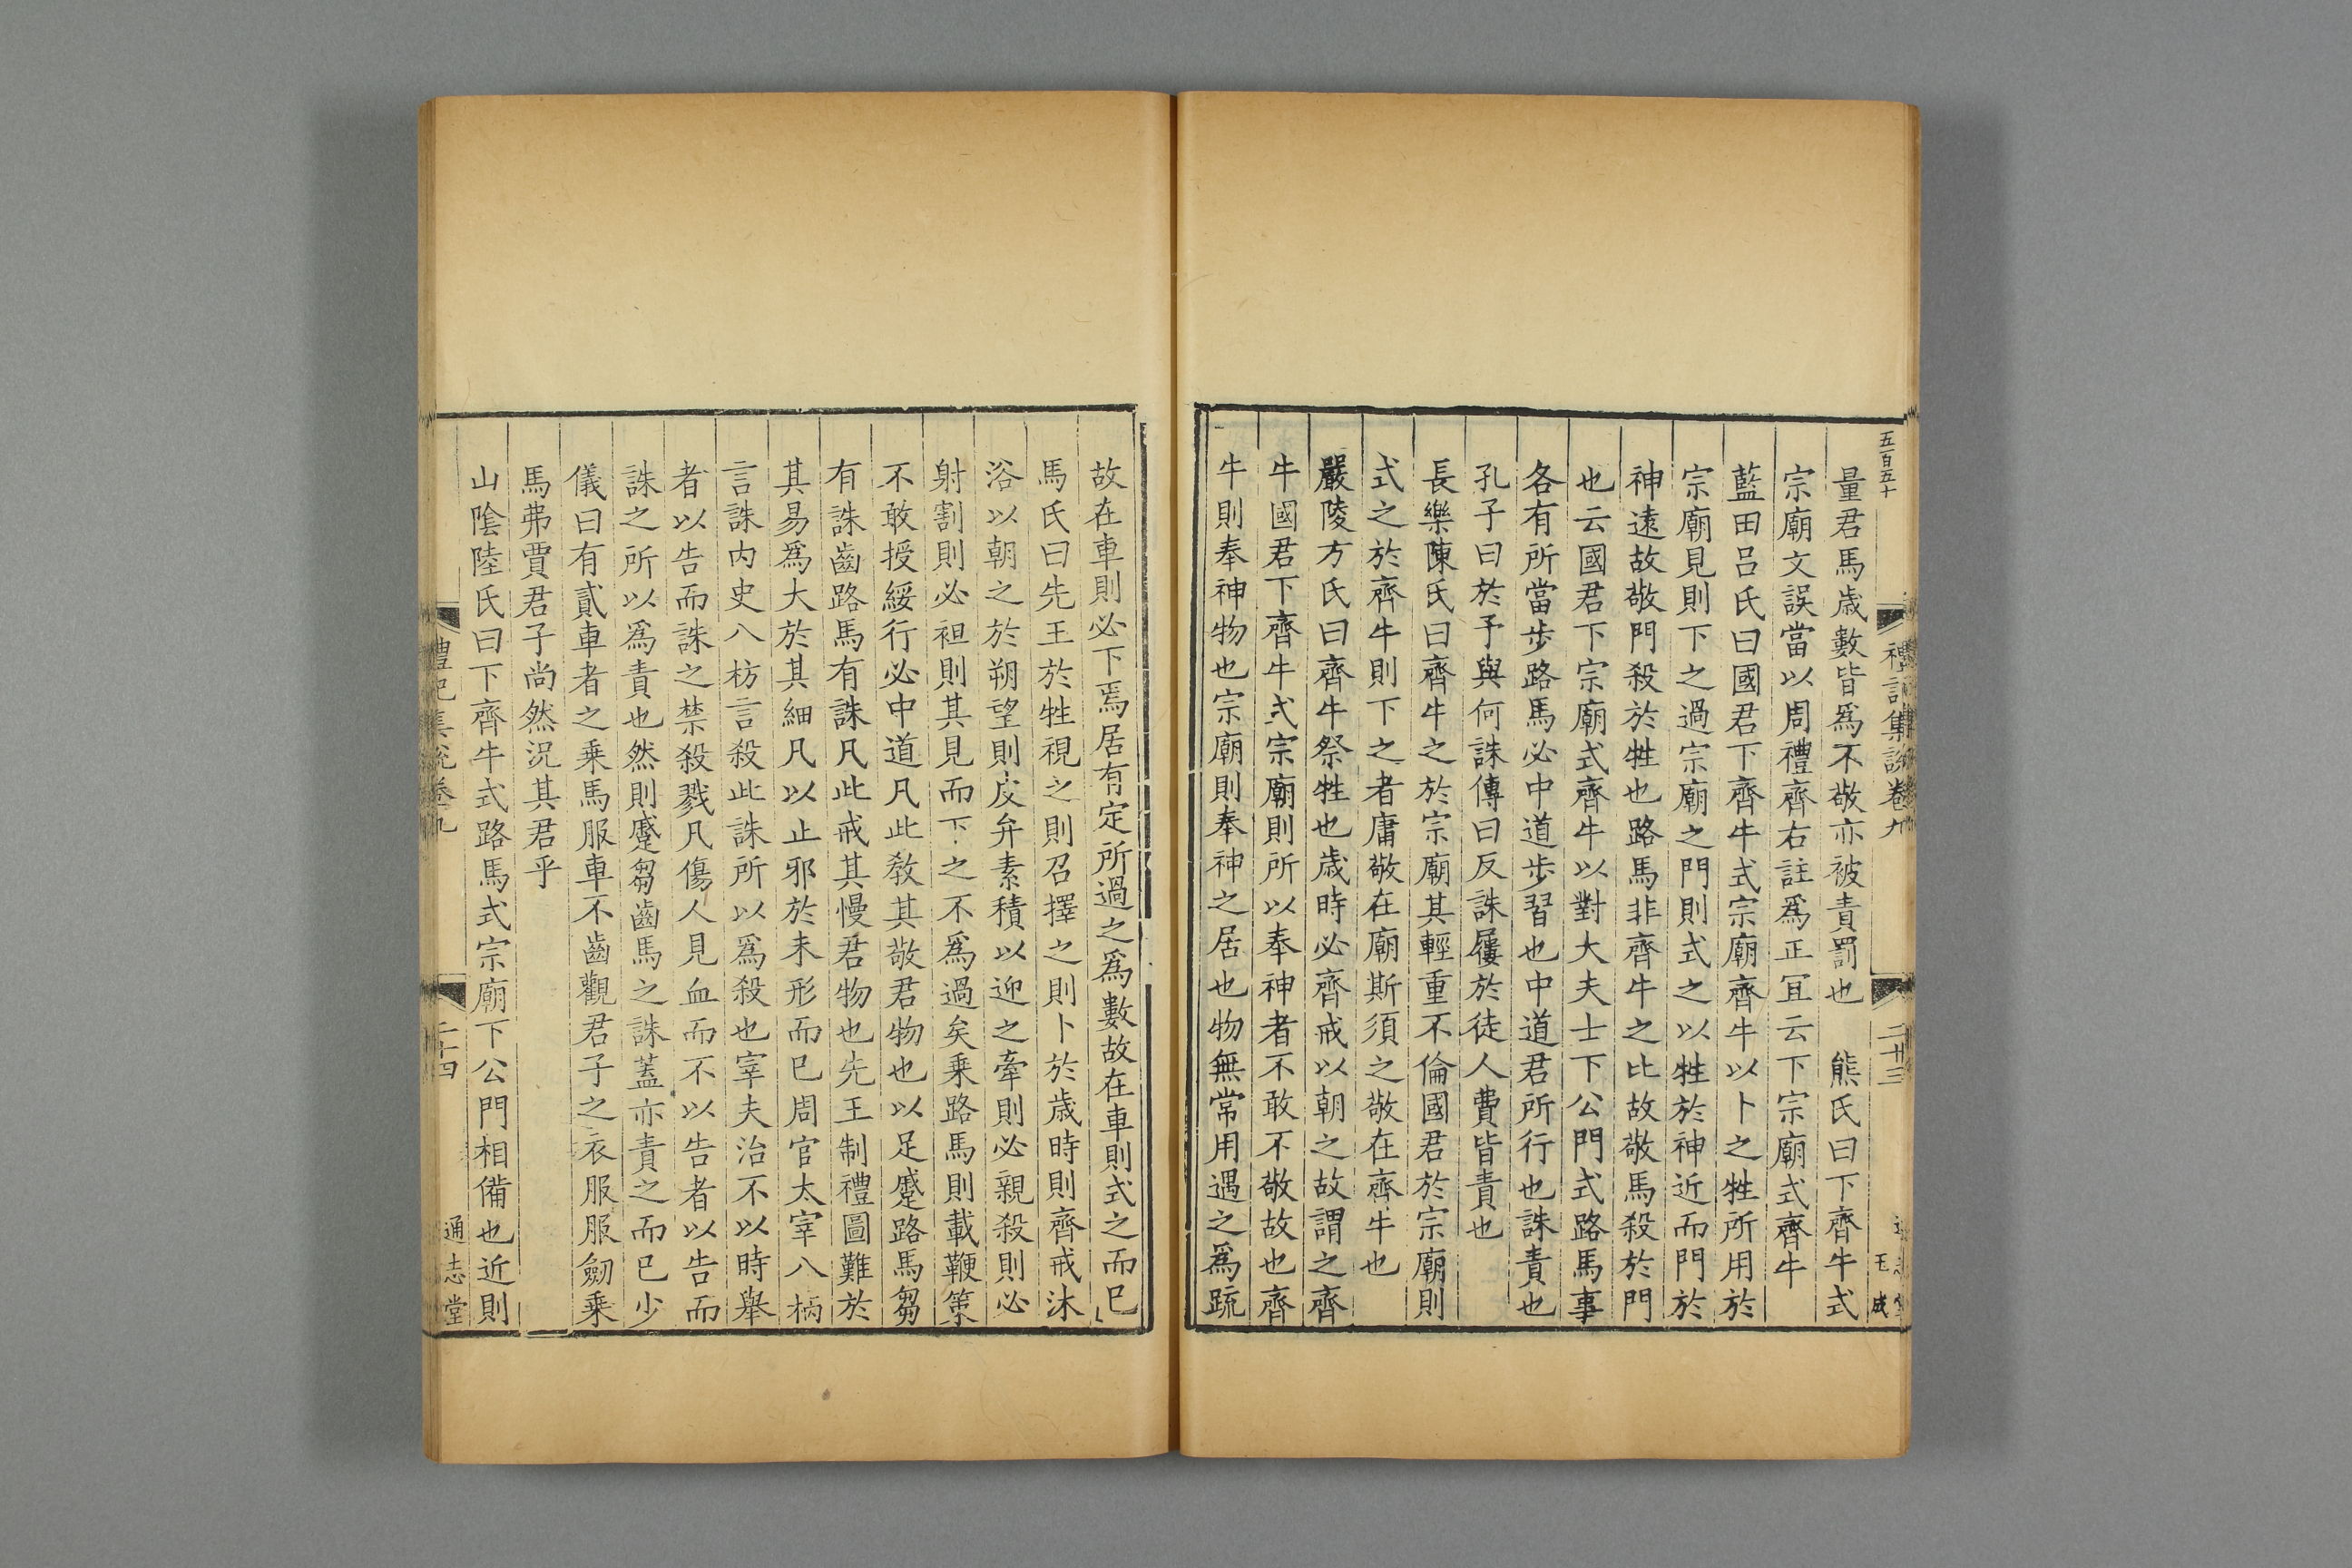 五百五十
禮記集說卷九
二十三
王
成
量君馬歲數皆爲不敬亦被責罰也　熊氏曰下齊牛式
宗廟文誤當以周禮齊右註爲正冝云下宗廟式齊牛
藍田呂氏曰國君下齊牛式宗廟齊牛以卜之牲所用於
宗廟見則下之過宗廟之門則式之以牲於神近而門於
神遠故敬門殺於牲也路馬非齊牛之比故敬馬殺於門
也云國君下宗廟式齊牛以對大夫士下公門式路馬事
各有所當步路馬必中道步習也中道君所行也誅責也
孔子曰於予與何誅傳曰反誅屨於徒人費皆責也
長樂陳氏曰齊牛之於宗廟其輕重不倫國君於宗廟則
式之於齊牛則下之者庸敬在廟斯須之敬在齊牛也
嚴陵方氏曰齊牛祭牲也歲時必齊戒以朝之故謂之齊
牛國君下齊牛式宗廟則所以奉神者不敢不敬故也齊
牛則奉神物也宗廟則奉神之居也物無常用遇之爲疏
故在車則必下焉居有定所過之爲數故在車則式之而已
馬氏曰先王於牲視之則召擇之則卜於歲時則齊戒沐
浴以朝之於朔望則皮弁素積以迎之牽則必親殺則必
射割則必袒則其見而下之不爲過矣乗路馬則載鞭策
不敢授綏行必中道凡此教其敬君物也以足蹙路馬芻
有誅齒路馬有誅凡此戒其慢君物也先王制禮圖難於
其易爲大於其細凡以止邪於未形而已周官太宰八柄
言誅内史八枋言殺此誅所以爲殺也宰夫治不以時舉
者以告而誅之禁殺戮凡傷人見血而不以告者以告而
誅之所以爲責也然則蹙芻齒馬之誅蓋亦責之而已少
儀曰有貳車者之乗馬服車不齒觀君子之衣服服劒乗
馬弗賈君子尚然況其君乎
山陰陸氏曰下齊牛式路馬式宗廟下公門相備也近則
禮記集說卷九
二十四
通志堂